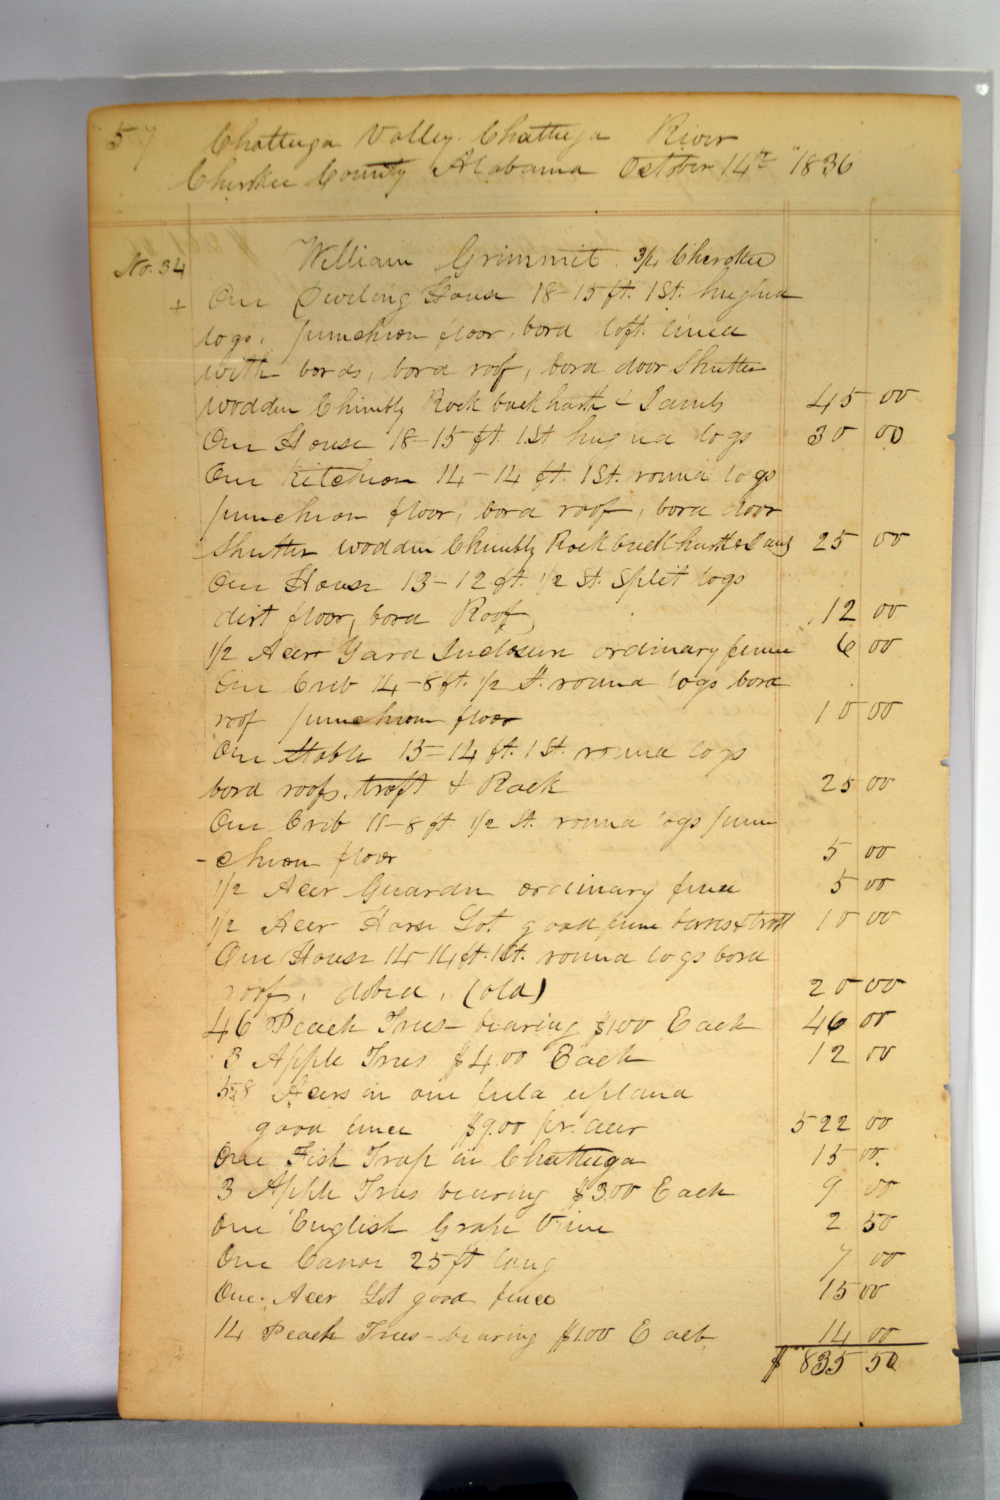 57 Chattuga Valley Chattuga River
Cherokee County Alabama October 14th 1836
No. 34 William Grimmit 3/4 Cherokee
+ One Dweling House 18-15 ft. 1 St. hughed
logs, punchion floor, bord loft lined
with bords, bord roof, bord door Shutter
wodden Chimbly Rock back harth & Jambs 45 00
One House 18-15 ft. 1 St hughed logs 30 00
One Kitchion 14-14 ft. 1 St. round logs
punchion floor, bord roof, bord door
Shutter wodden Chimbly Rock back harth & Jambs 25 00
One House 13-12 ft. 1/2 St. Split logs
dirt floor, bord Roof 12 00
1/2 Acer Yard Inclosure ordinary fence 6 00
One Crib 14-8 ft. 1/2 St. round logs bord
roof punchion floor 10 00
One Stable 15-14 ft. 1 St. round logs
bord roof, troft & Rack 25 00
One Crib 11-8 ft 1/2 St. round logs pun
-chion floor 5 00
1/2 Acer Guarden ordinary fence 5 00
1/2 Acer Horse Lot good fence & troft 10 00
One House 14-14 ft. 1 St. round logs bord
roof, dobed, (old) 20 00
46 Peach Trees - bearing $1.00 Each 46 00
3 Apple Trees $4.00 Each 12 00
58 Acers in one field upland
good fence $9.00 pr. acer 522 00
One Fish Trap in Chattuga 15 00
3 Apple Trees bearing $3.00 Each 9 00
One English Grape Vine 2 50
One Canoe 25 ft long 7 00
One Acer Lot good fence 15 00
14 Peach Trees - bearing $1.00 Each 14 00
$ 835 50